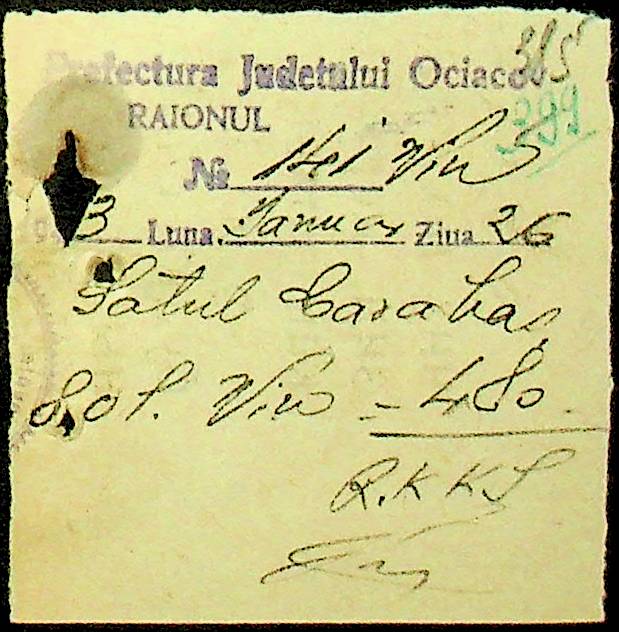 385
Prefectura Judetului Ociacov
399
RAIONUL
№ Vin
3 Luna Ianuar Ziua 26
Satul Carabaș
Sol. Vin = 480.
R.KKS